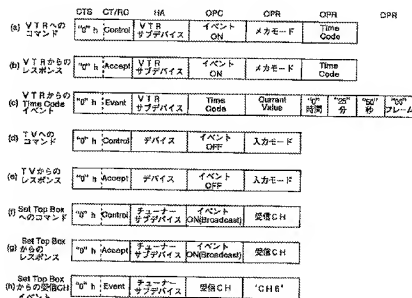 CTS CT/RC HA OPC OPR OPR OPR
(a) VTRへの コマンド "0" h Control VTR サブデバイス イベント ON メカモード Time Code
(b) VTRからの レスポンス "0" h Accept VTR サブデバイス イベント ON メカモード Time Code
(c) VTRからの Time Code イベント "0" h Event VTR サブデバイス Time Code Qurrant Value "0" 時間 "25" 分 "50" 秒 "00" フレーム
(d) TVへの コマンド "0" h Control デバイス イベント OFF 入力モード
(e) TVからの レスポンス "0" h Accept デバイス イベント OFF 入力モード
(f) Set Top Box へのコマンド "0" h Control チューナー サブデバイス イベント ON(Broadcast) 受信CH
(g) Set Top Box からの レスポンス "0" h Accept チューナー サブデバイス イベント ON(Broadcast) 受信CH
(h) Set Top Box からの受信CH イベント "0" h Event チューナー サブデバイス 受信CH "CH6"